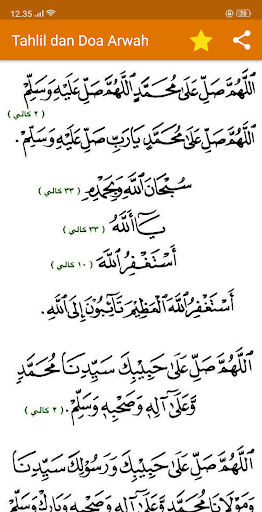 12.35
70
Tahlil dan Doa Arwah
اَللّٰهُمَّ صَلِّ عَلَىٰ مُحَمَّدٍ اَللّٰهُمَّ صَلِّ عَلَيْهِ وَسَلِّمْ
( ٢ كالي )
اَللّٰهُمَّ صَلِّ عَلَىٰ مُحَمَّدٍ يَارَبِّ صَلِّ عَلَيْهِ وَسَلِّمْ.
سُبْحَانَ اللّٰهِ وَبِحَمْدِهِ ( ٣٣ كالي )
يَآ اَللّٰهُ ( ٣٣ كالي )
أَسْتَغْفِرُ اللّٰهَ ( ١٠ كالي )
أَسْتَغْفِرُ اللّٰهَ الْعَظِيْمَ تَآئِبُوْنَ إِلَى اللّٰهِ.
اَللّٰهُمَّ صَلِّ عَلَىٰ حَبِيْبِكَ سَيِّدِنَا مُحَمَّدٍ
وَّعَلَىٰ آلِهِ وَصَحْبِهِ وَسَلِّمْ. ( ٢ كالي )
اَللّٰهُمَّ صَلِّ عَلَىٰ حَبِيْبِكَ وَرَسُوْلِكَ سَيِّدِنَا
وَمَوْلَانَا مُحَمَّدٍ وَّعَلَىٰ آلِهِ وَصَحْبِهِ وَبَارِكْ وَسَلِّمْ